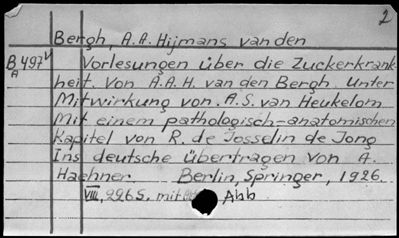 2
Bergh, A.A. Hijmans van den
B 497 Vorlesungen über die Zuckerkrank-
A heit. Von A.A.H. van den Bergh. Unter
Mitwirkung von. A.S. van Heukelom
Mit einem pathologisch-anatomischen
Kapitel von R. de Josselin de Jong
Ins deutsche übertragen von A.
Haehner Berlin, Springer, 1926.
VIII, 226 S. mit Abb